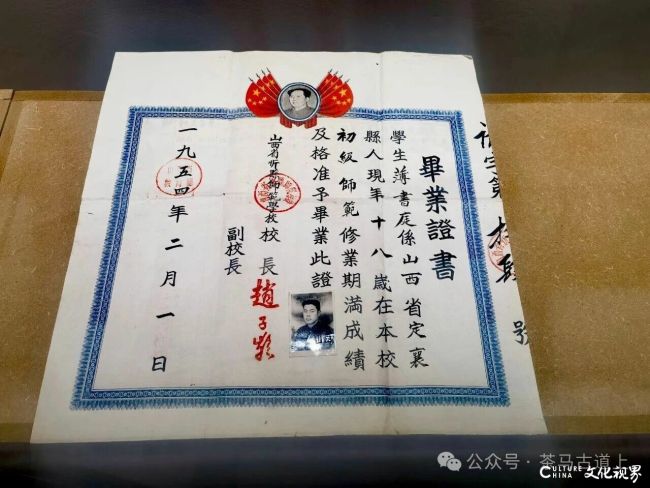 畢業證書
學生薄書庭係山西省定襄
縣人現年十八歲在本校
初級師範修業期滿成績
及格准予畢業此證
山西省忻縣師範學校校長
副校長
一九五四年二月一日
字第
號
公众号·茶马古道上
CULTURE
CHINA
文化视界